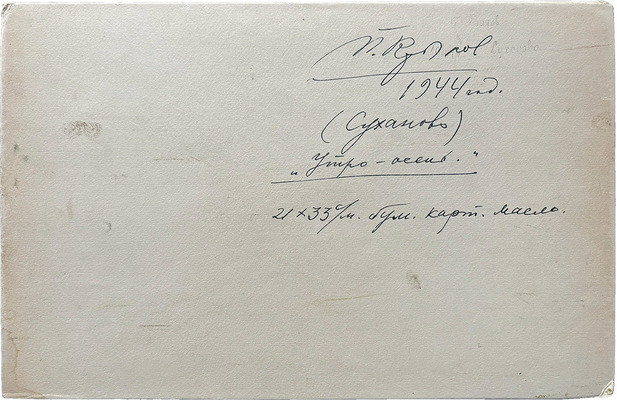 П. Крылов
1944 год.
(Суханово)
„Утро-осень."
21 × 33 с/м. бум. карт. масло.